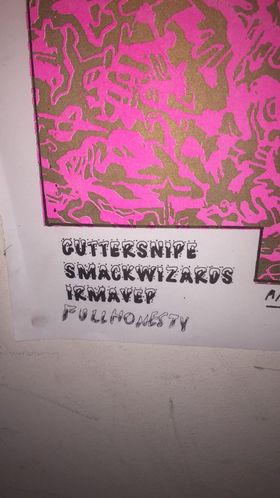 GUTTERSNIPE
SMACKWIZARDS
IRMAVEP
FULLHONESTY